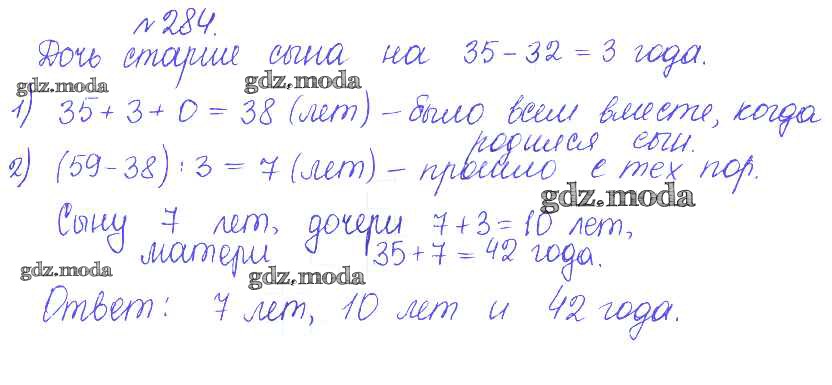 №284.
Дочь старше сына на 35-32=3 года.
gdz.moda gdz.moda
1) 35+3+0=38 (лет) - было всем вместе, когда
родился сын.
2) (59-38):3=7 (лет) - прошло с тех пор.
gdz.moda
Сыну 7 лет, дочери 7+3=10 лет,
матери 35+7=42 года.
gdz.moda gdz.moda
Ответ: 7 лет, 10 лет и 42 года.